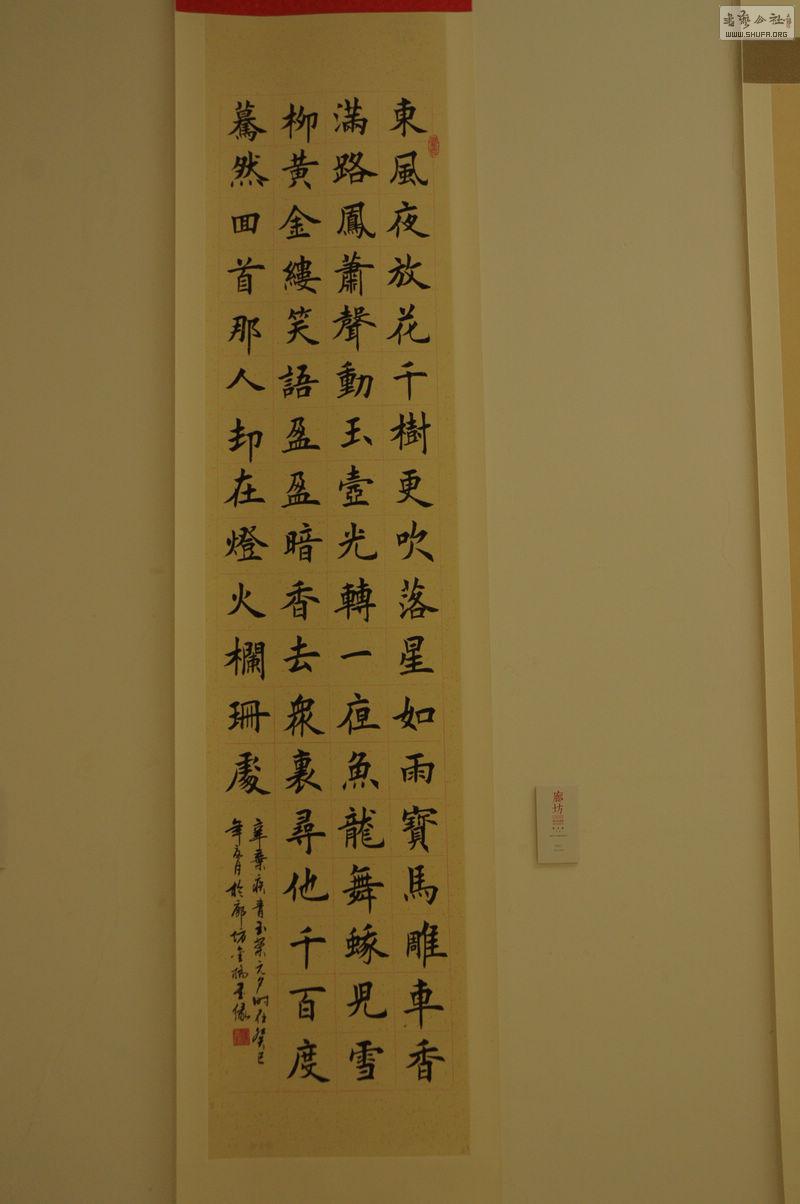 東風夜放花千樹更吹落星如雨寶馬雕車香
滿路鳳蕭聲動玉壺光轉一亱魚龍舞蛾児雪
柳黃金縷笑語盈盈暗香去衆裏尋他千百度
驀然囬首那人却在燈火欄珊處
辛棄疾青玉案元夕時在癸巳
年月於廊坊金橋墨緣
廊坊
書藝公社
WWW.SHUFA.ORG